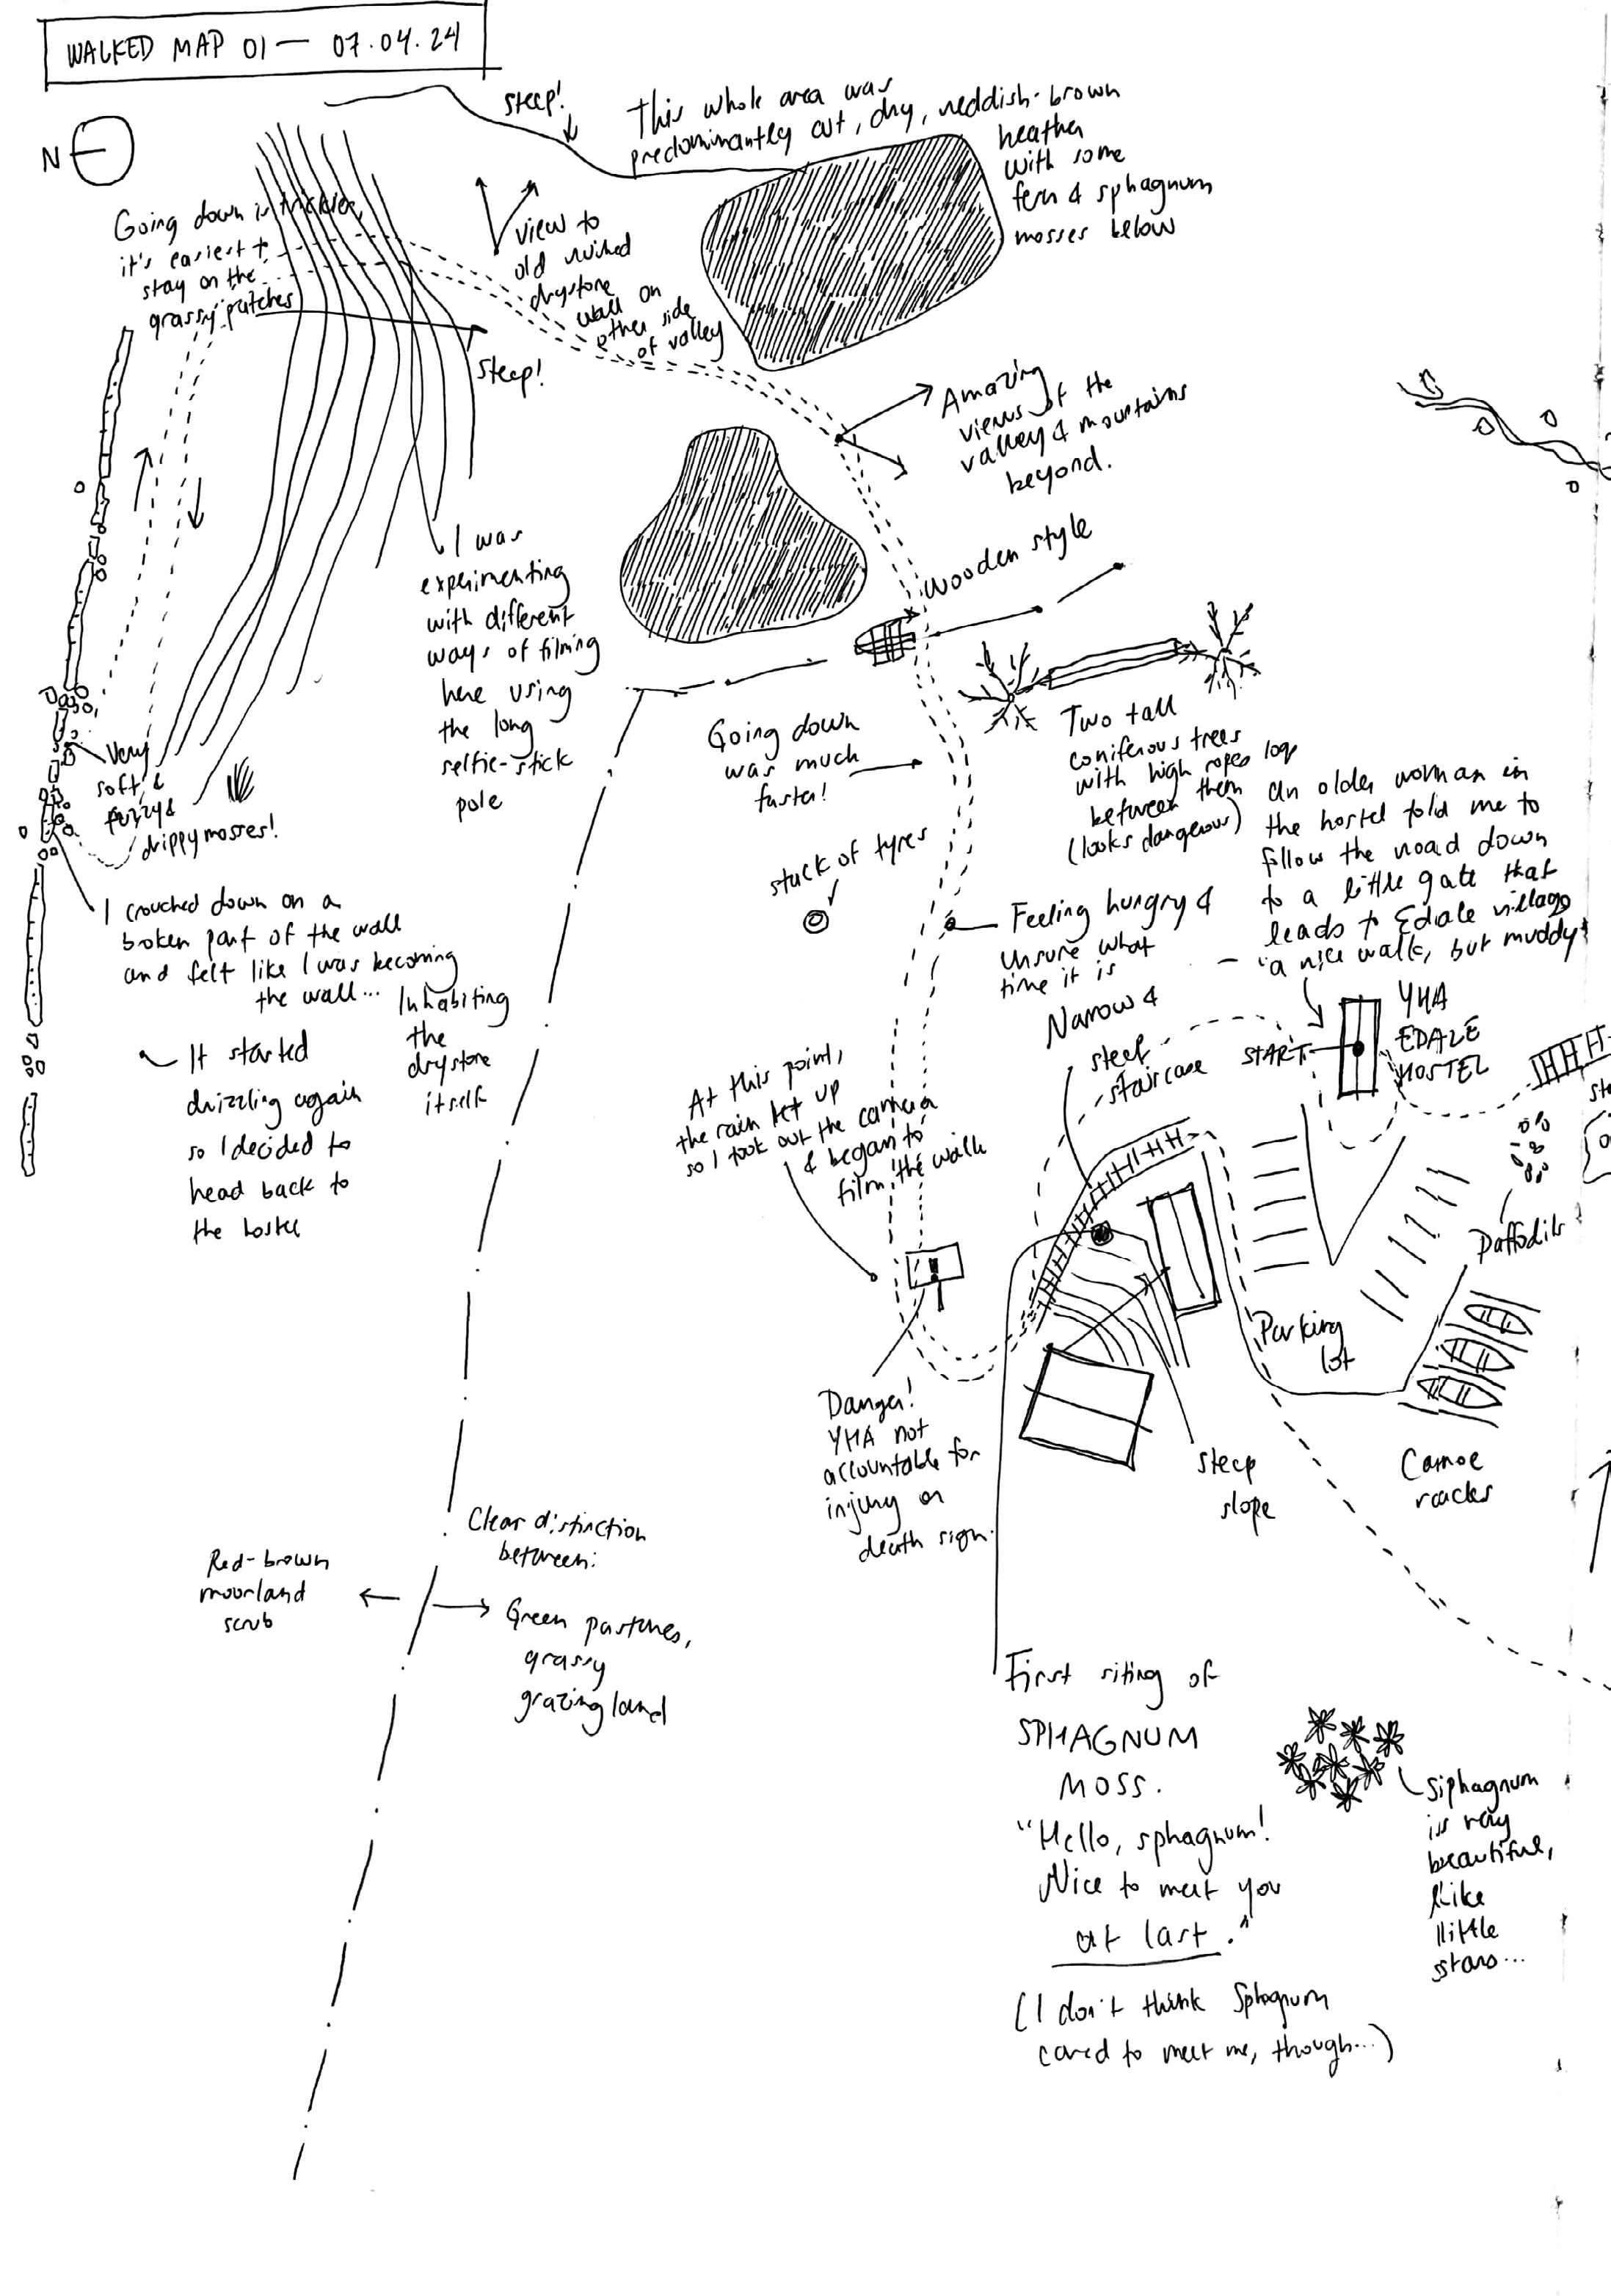 WALKED MAP 01 — 07.04.24
N
steep!
This whole area was
predominantly cut, dry, reddish-brown
heather
with some
fern & sphagnum
mosses below
Going down is trickier,
it's easiest to
stay on the
grassy patches
view to
old ruined
drystone
wall on
other side
of valley
steep!
Amazing
views of the
valley & mountains
beyond.
Wooden style
I was
experimenting
with different
ways of filming
here using
the long
selfie-stick
pole
Going down
was much
faster!
Two tall
coniferous trees
with high ropes log
between them
(looks dangerous)
An older woman in
the hostel told me to
follow the road down
to a little gate that
leads to Edale village
- "a nice walk, but muddy"
Very
soft &
fuzzy &
drippy mosses!
stack of tyres
I crouched down on a
broken part of the wall
and felt like I was becoming
the wall...
Inhabiting
the
drystone
itself
Feeling hungry &
unsure what
time it is
It started
drizzling again
so I decided to
head back to
the hostel
Narrow &
steep
staircase
START
YHA
EDALE
HOSTEL
At this point,
the rain let up
so I took out the camera
& began to
film the walk
Daffodils
Parking
lot
Danger!
YHA not
accountable for
injury or
death sign.
steep
slope
Canoe
racks
Clear distinction
between:
Red-brown
moorland
scrub
Green pastures,
grassy
grazing land
First siting of
SPHAGNUM
MOSS.
"Hello, sphagnum!
Nice to meet you
at last."
(I don't think Sphagnum
cared to meet me, though...)
Siphagnum
is very
beautiful,
like
little
stars...